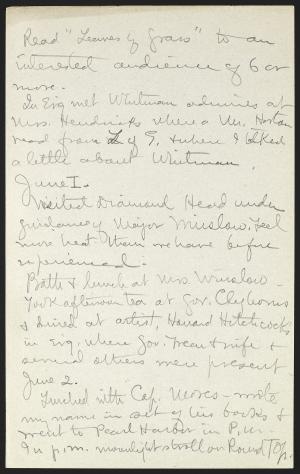 Read "Leaves of Grass" to an
interested audience of 6 or
more.
In Evg met Whitman admirers at
Mrs. Hendricks where a Mr. Horton
read from L of G. & where I talked
a little about Whitman.
June 1.
Visited Diamond Head under
guidance of Major Winslow. Feel
more heat than we have before
experienced.
Bath & lunch at Mrs. Winslow
Took afternoon tea at Gov. Cleghorns
& dined at artist, Howard Hitchcocks
in Evg. where Gov. Frear & wife &
several others were present.
June 2.
Lunched with Cap. Moses - wrote
my name in set of his books &
went to Pearl Harbor in P.M.
9 in p.m. moonlight stroll on Round Top.